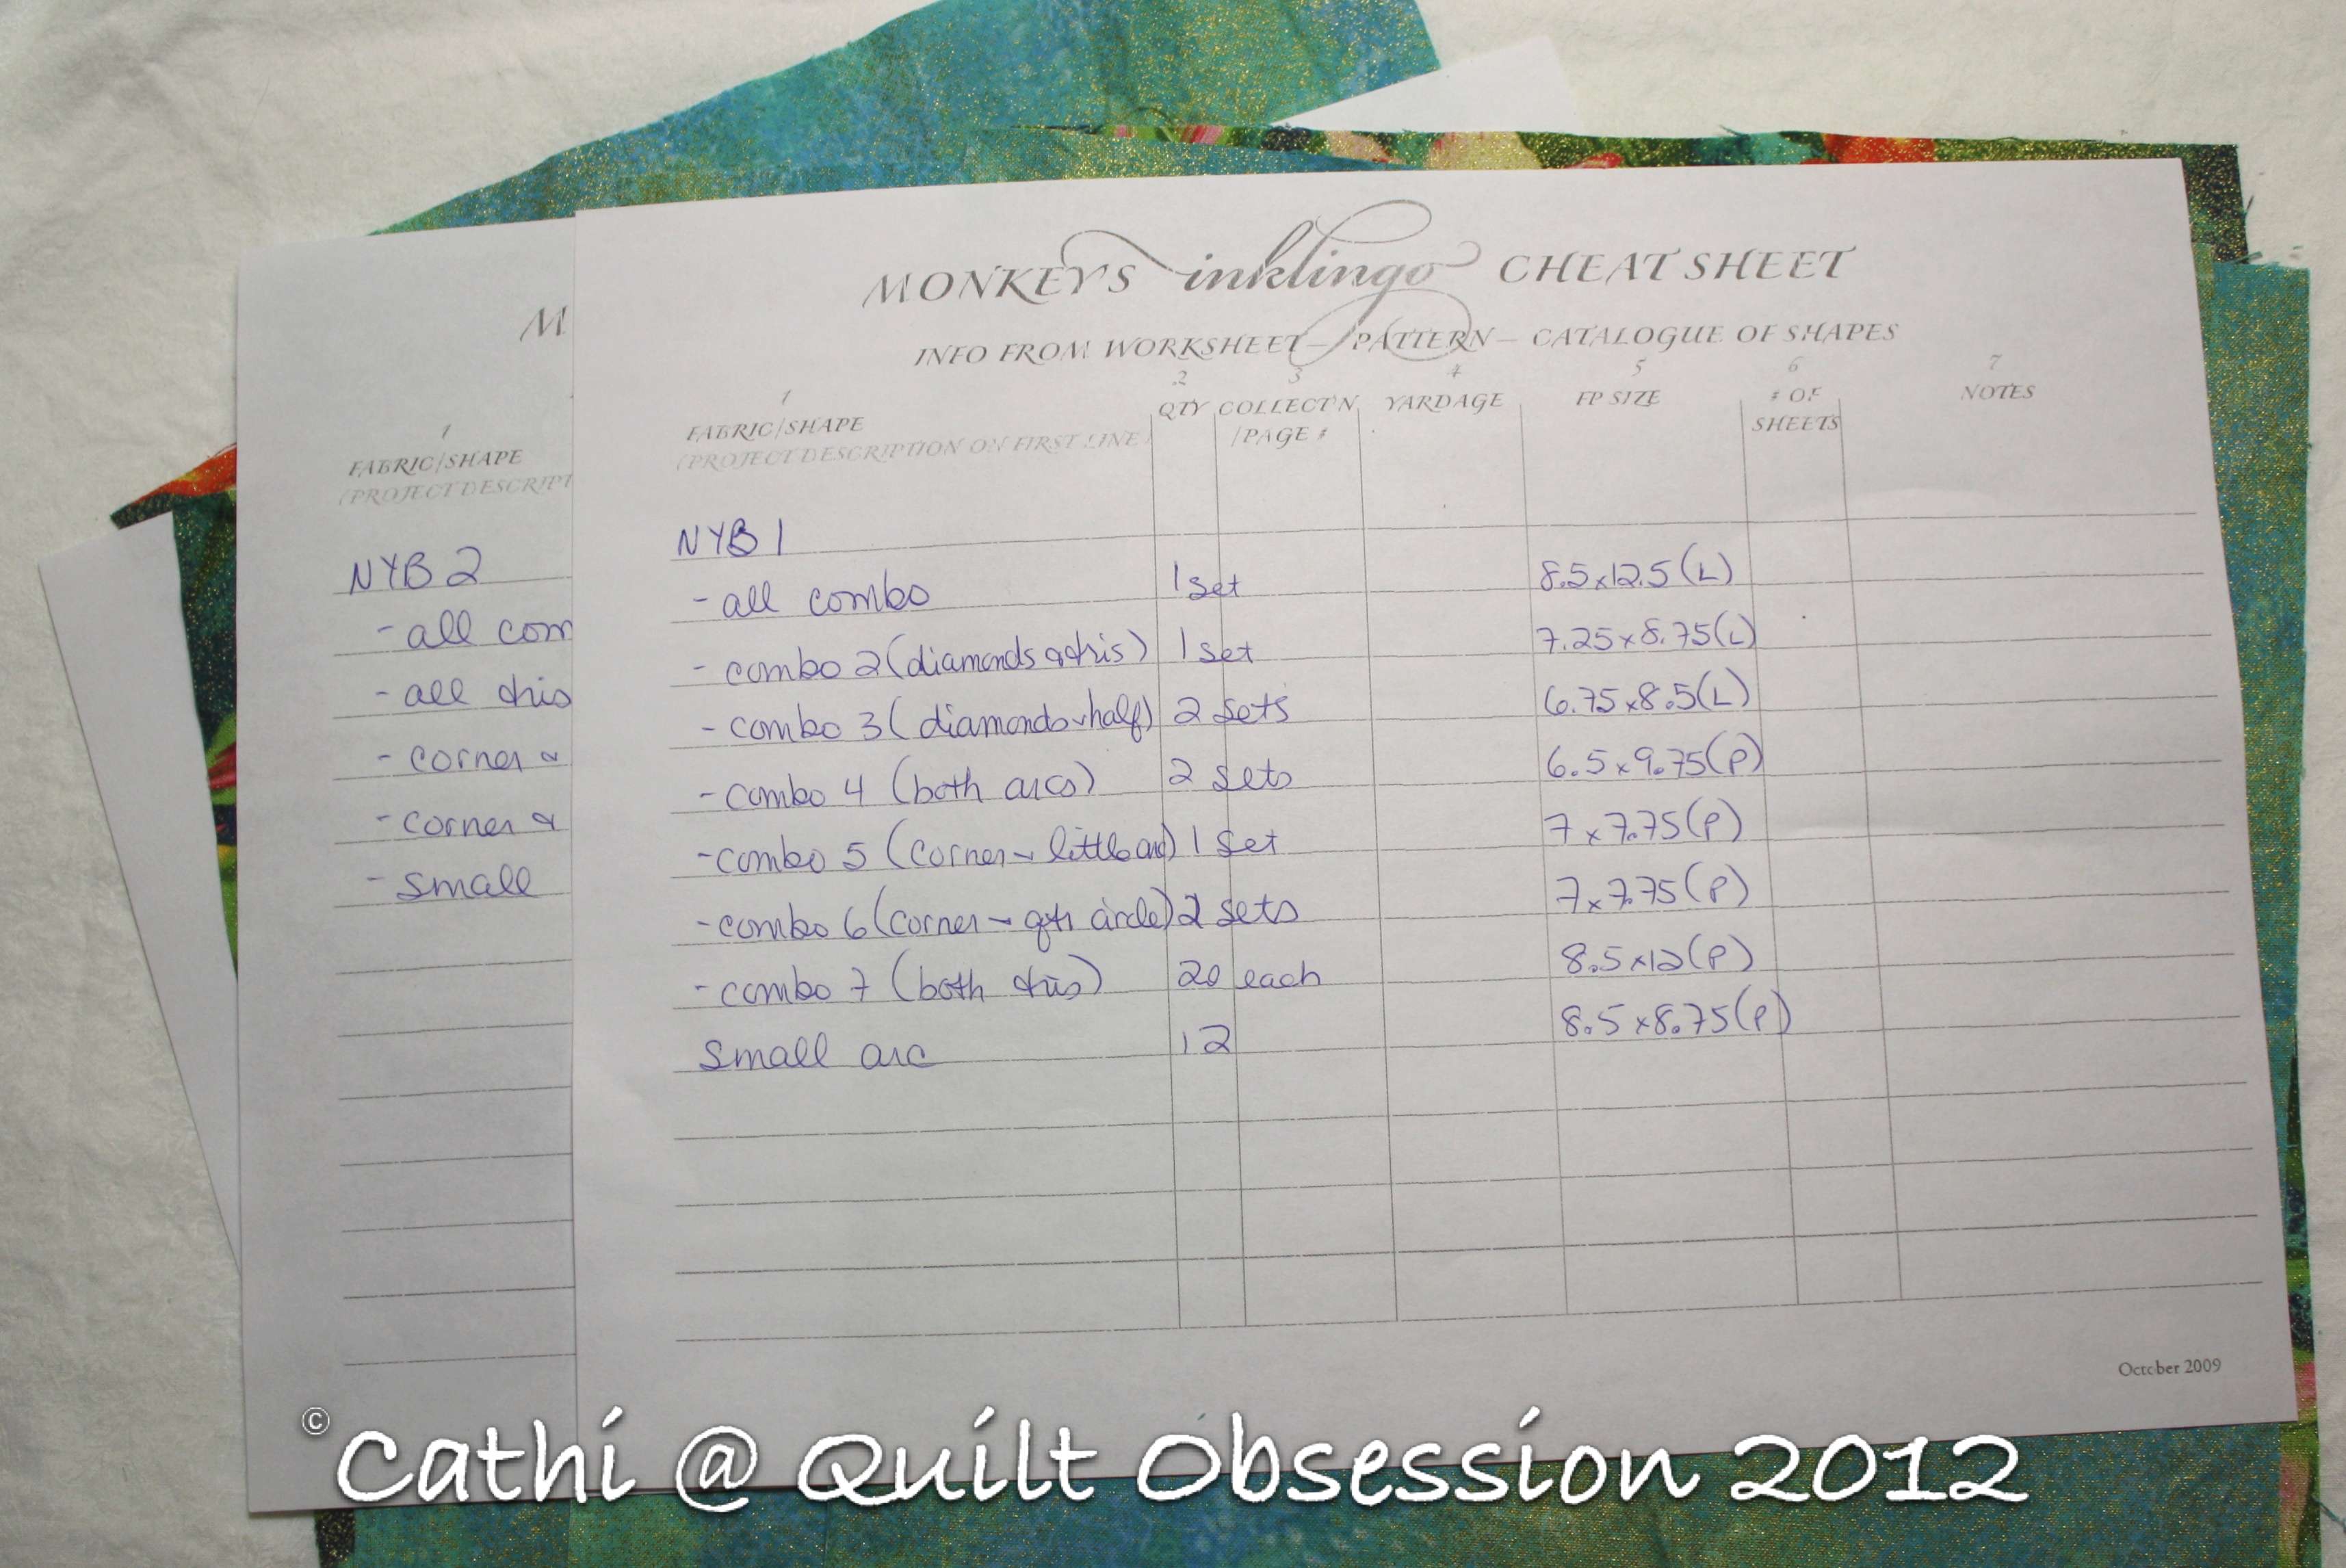 MONKEY'S inklingo CHEAT SHEET
INFO FROM WORKSHEET — PATTERN — CATALOGUE OF SHAPES
1 2 3 4 5 6 7
FABRIC/SHAPE QTY COLLECT'N YARDAGE FP SIZE # OF NOTES
(PROJECT DESCRIPTION ON FIRST LINE) /PAGE # SHEETS
NYB 1
- all combo 1 set 8.5x12.5 (L)
- combo 2 (diamonds & tris) 1 set 7.25x8.75(L)
- combo 3 (diamonds & half) 2 sets 6.75x8.5(L)
- combo 4 (both arcs) 2 sets 6.5x9.75(P)
- combo 5 (corner & little arc) 1 set 7x7.75(P)
- combo 6 (corner & qtr circle) 2 sets 7x7.75(P)
- combo 7 (both tris) 20 each 8.5x12(P)
small arc 12 8.5x8.75(P)
October 2009
M
1
FABRIC/SHAPE
(PROJECT DESCRIPT
NYB 2
- all com
- all tris
- corner &
- corner &
- small
© Cathi @ Quilt Obsession 2012